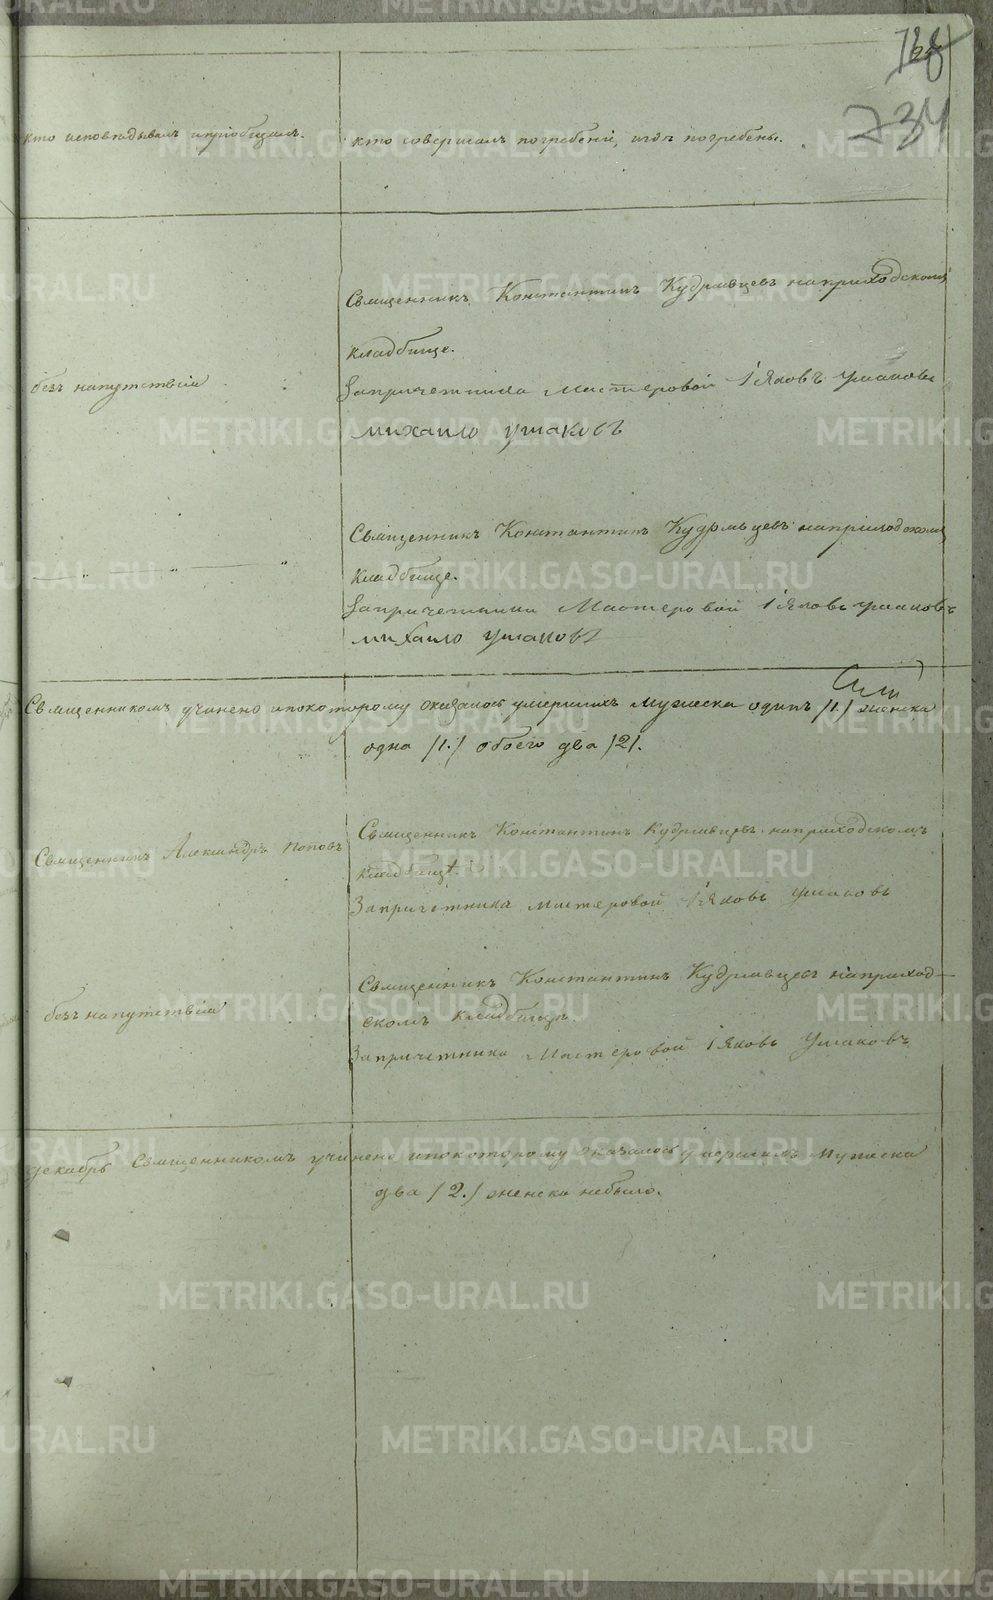 734
кто исповѣдывалъ ипріобщалъ.
кто совершалъ погребеніе, игдѣ погребены.
Священникъ Константинъ Кудрявцевъ наприходскомъ
кладбище.
безъ напутствія
Запричетника Мастеровой Іяковъ Ушаковъ
михаило ушаковъ
Священникъ Константинъ Кудрявцевъ наприходскомъ
кладбище.
— „ — „ — „
Запричетника Мастеровой Іяковъ ушаковъ
михаило ушаковъ
Священникомъ учинено ипокоторому оказалось умершихъ мужеска одинъ /1./ женска
одна /1./ обоего два /2/.
Священникъ Александръ Поповъ
Священникъ Константинъ Кудрявцевъ наприходскомъ
кладбищѣ.
Запричетника мастеровой Іяковъ ушаковъ
Священникъ Константинъ Кудрявцевъ наприход-
скомъ кладбищѣ.
безъ напутствія
Запричетника Мастеровой Іяковъ Ушаковъ
декабрь Священникомъ учинено ипокоторому оказалось умершихъ Мужеска
два /2./ женска небыло.